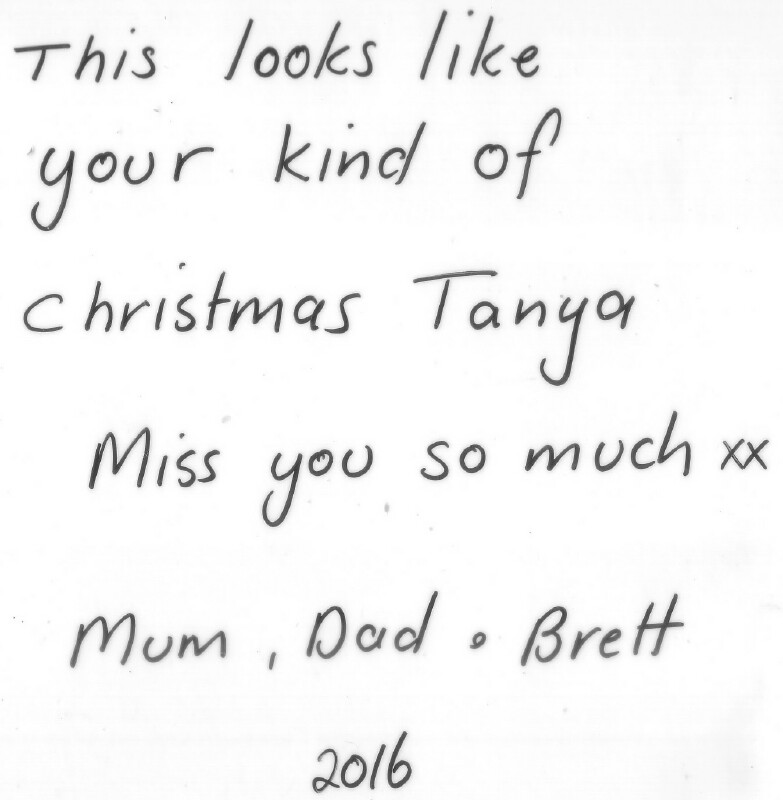 This looks like
your kind of
Christmas Tanya
Miss you so much xx
Mum, Dad • Brett
2016